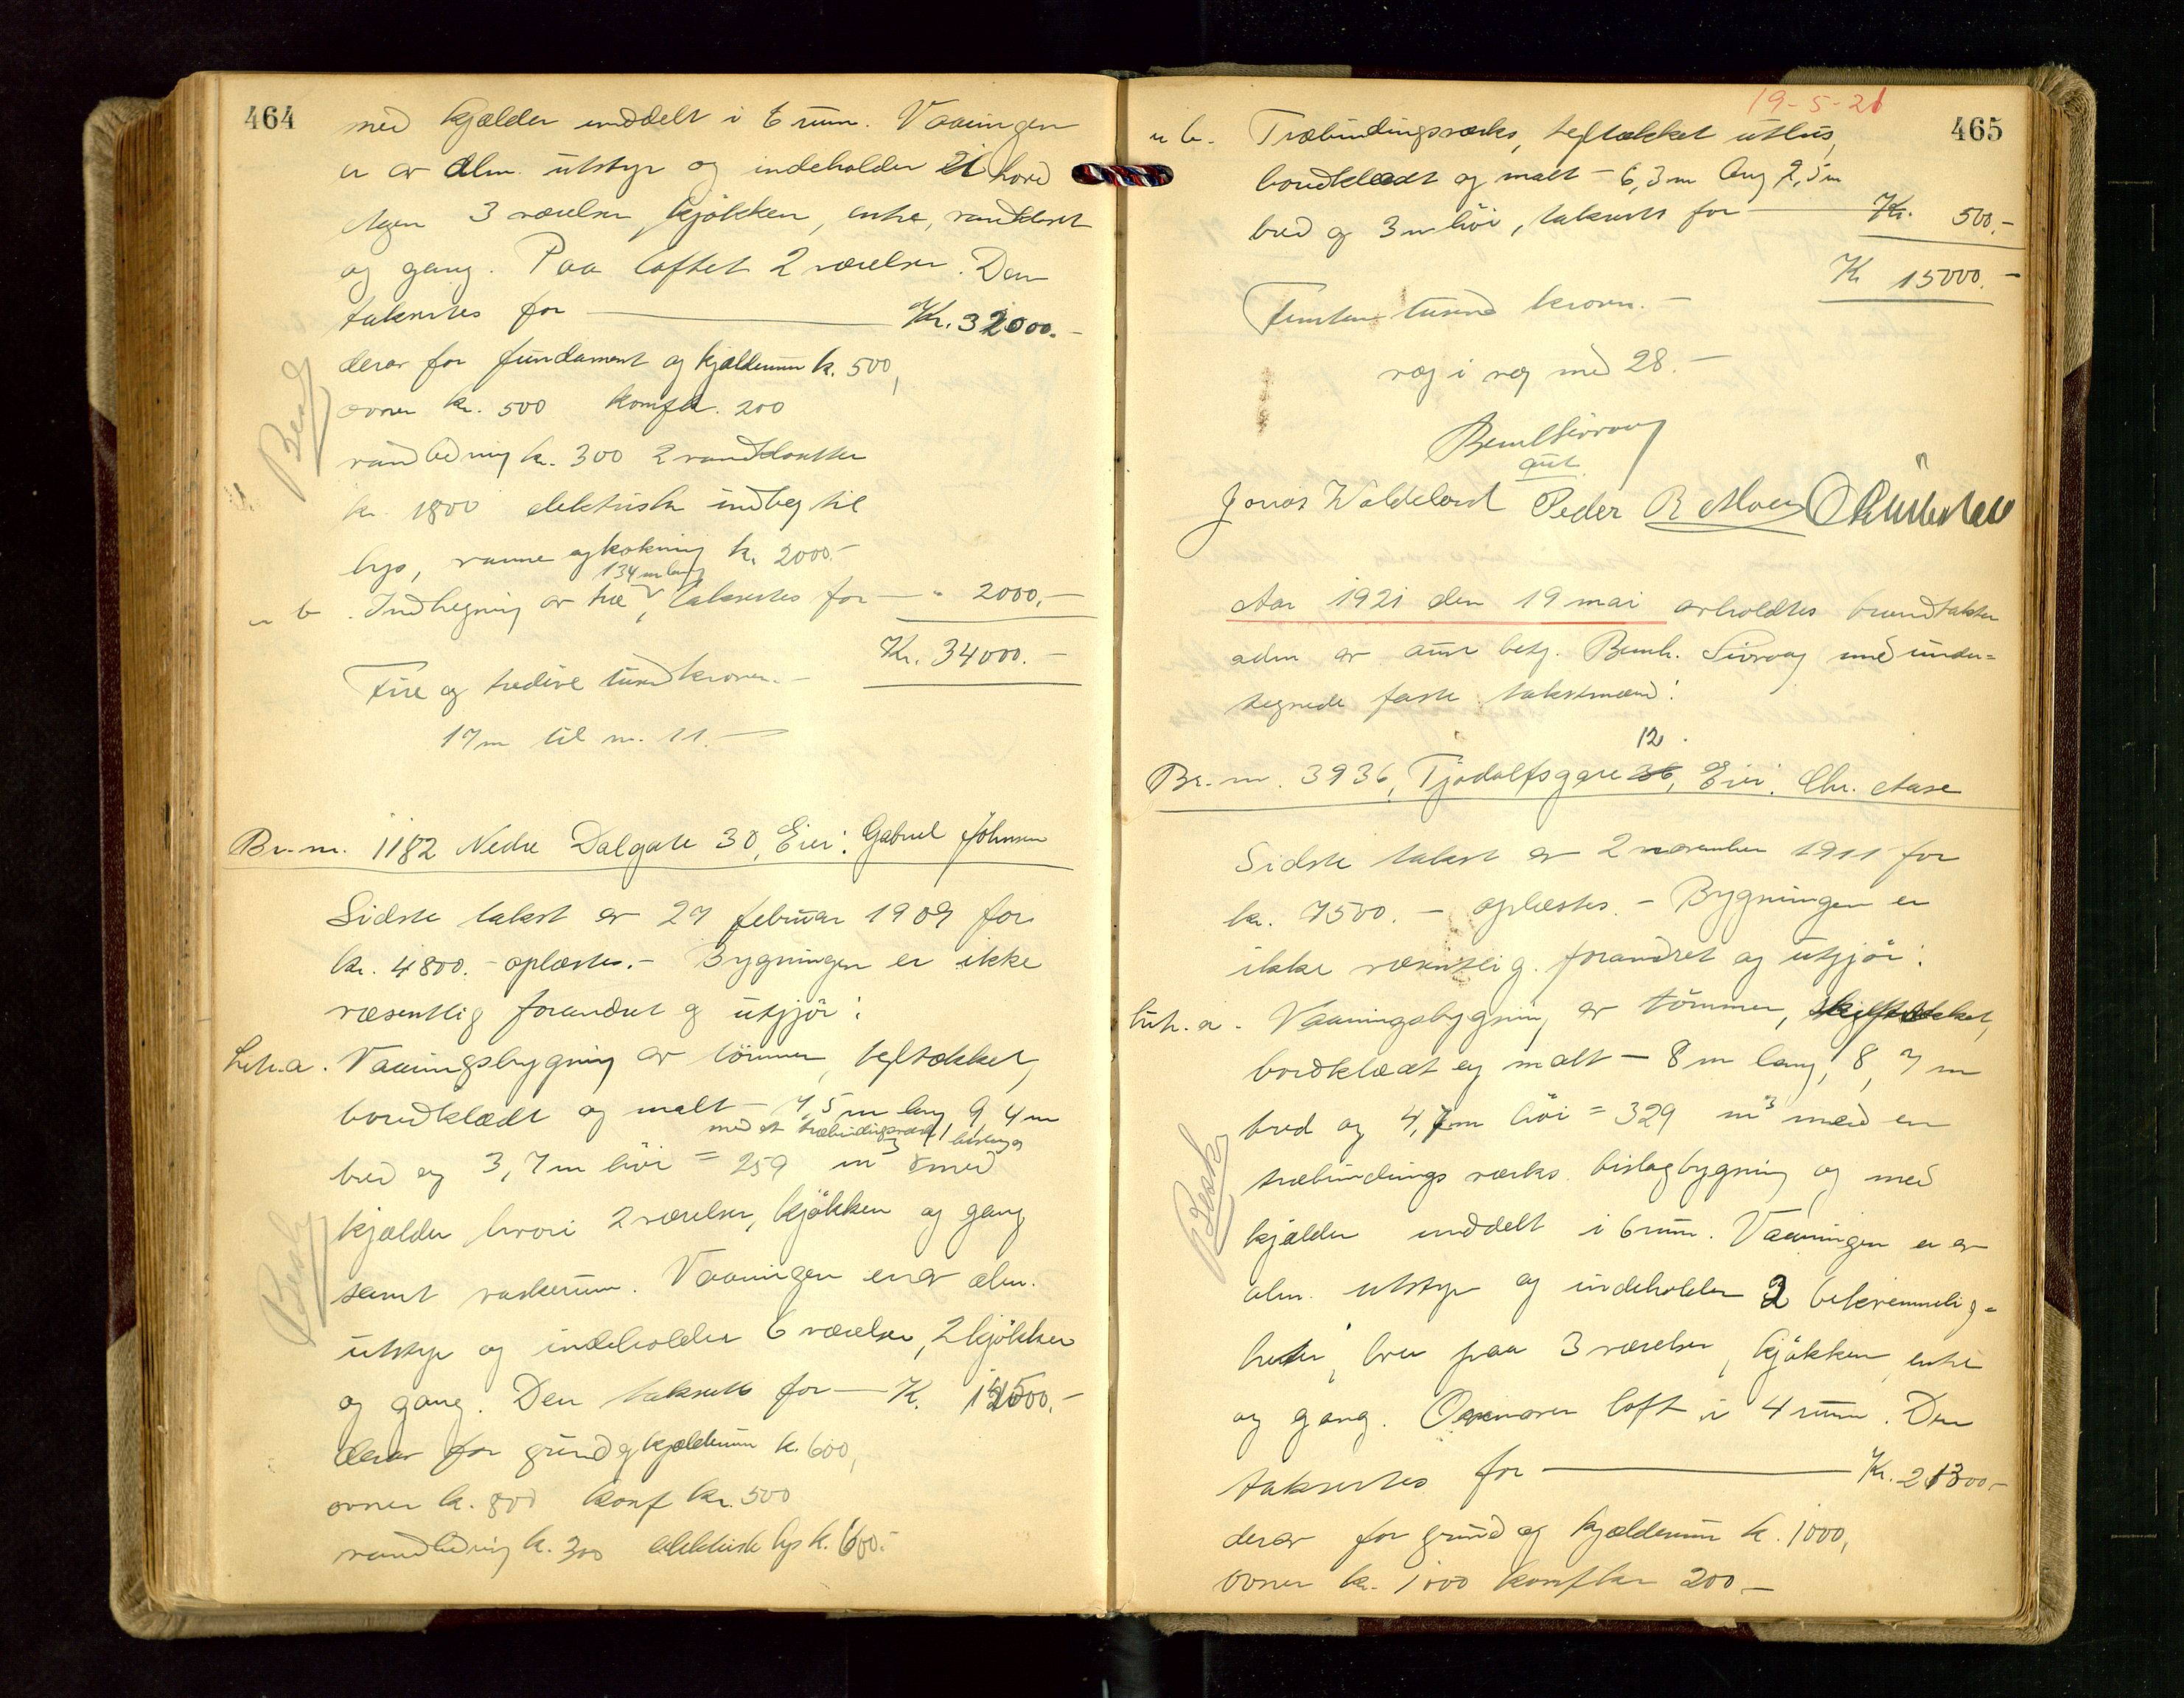 464
med kjælder inddelt i 6 rum. Vaaningen
er av alm. utstyr og indeholder i hoved
etagen 3 værelser, kjøkken, entre, vandkloset
og gang. Paa loftet 2 værelser. Den
taksertes for Kr. 32000.-
derav for fundament og kjælderrum k. 500,
ovner kr. 500 komf. kr. 200
vandledning kr. 300 2 vandklosetter
kr. 1800 elektrisk indlæg til
lys, varme og kokning kr. 2000.-
134 m lang
" b. Indhegning av træ, taksertes for — " 2000.-
Kr. 34000.-
Fire og tredive tusend kroner.-
17 m til nr. 11.-
Besg
Br.-nr. 1182 Nedre Dalgate 30, Eier: Gabriel Johnsen
Sidste takst er 27 februar 1909 for
kr. 4800.- oplæstes.- Bygningen er ikke
væsentlig forandret og utgjør:
Litr. a. Vaaningsbygning av tømmer, teglstækket,
bordklædt og malt - 7,5 m lang, 9,4 m
med et træbindingsverks bislag og
bred og 3,7 m høi = 259 m³ med
kjælder hvori 2 værelser, kjøkken og gang
samt vaskerum. Vaaningen er av alm.
utstyr og indeholder 6 værelser, 2 kjøkken
og gang. Den taksertes for — K. 14500.-
derav for grund og kjælderrum k. 600,
ovner k. 800 komf kr. 500
vandledning k. 300 elektrisk lys k. 600.-
Besg
19-5-21
465
" b. Træbindingsværks, teglstækket uthus,
bordklædt og malt - 6,3 m lang 2,5 m
bred og 3 m høi, taksert for — Kr. 500.-
Kr 15000.-
Femten tusend kroner.-
væg i væg med 28.-
Bernh Sivvaag
aut.
Jonas Waldeland Peder R Moen
Aar 1921 den 19 mai avholdtes brandtakster
aden av aut betj. Bernh. Sivvaag med under=
tegnede faste takstmænd:
12.
Br.-nr. 3936, Tjodolfsgate 36, Eier: Chr. Aase
Sidste takst er 2 november 1911 for
kr. 7500.- oplæstes.- Bygningen er
ikke væsentlig forandret og utgjør:
Litr. a. Vaaningsbygning av tømmer, skifertækket,
bordklædt og malt - 8 m lang, 8,7 m
bred og 4,7 m høi = 329 m³ med en
træbindings værks bislagbygning og med
kjælder inddelt i 6 rum. Vaaningen er av
alm. utstyr og indeholder 2 bekvemmelig=
heter, hver paa 3 værelser, kjøkken, entre
og gang. Ovenover loft i 4 rum. Den
taksertes for — Kr. 21300.-
derav for grund og kjælderrum k. 1000,
ovner kr. 1000 komf kr 200 -
Besk